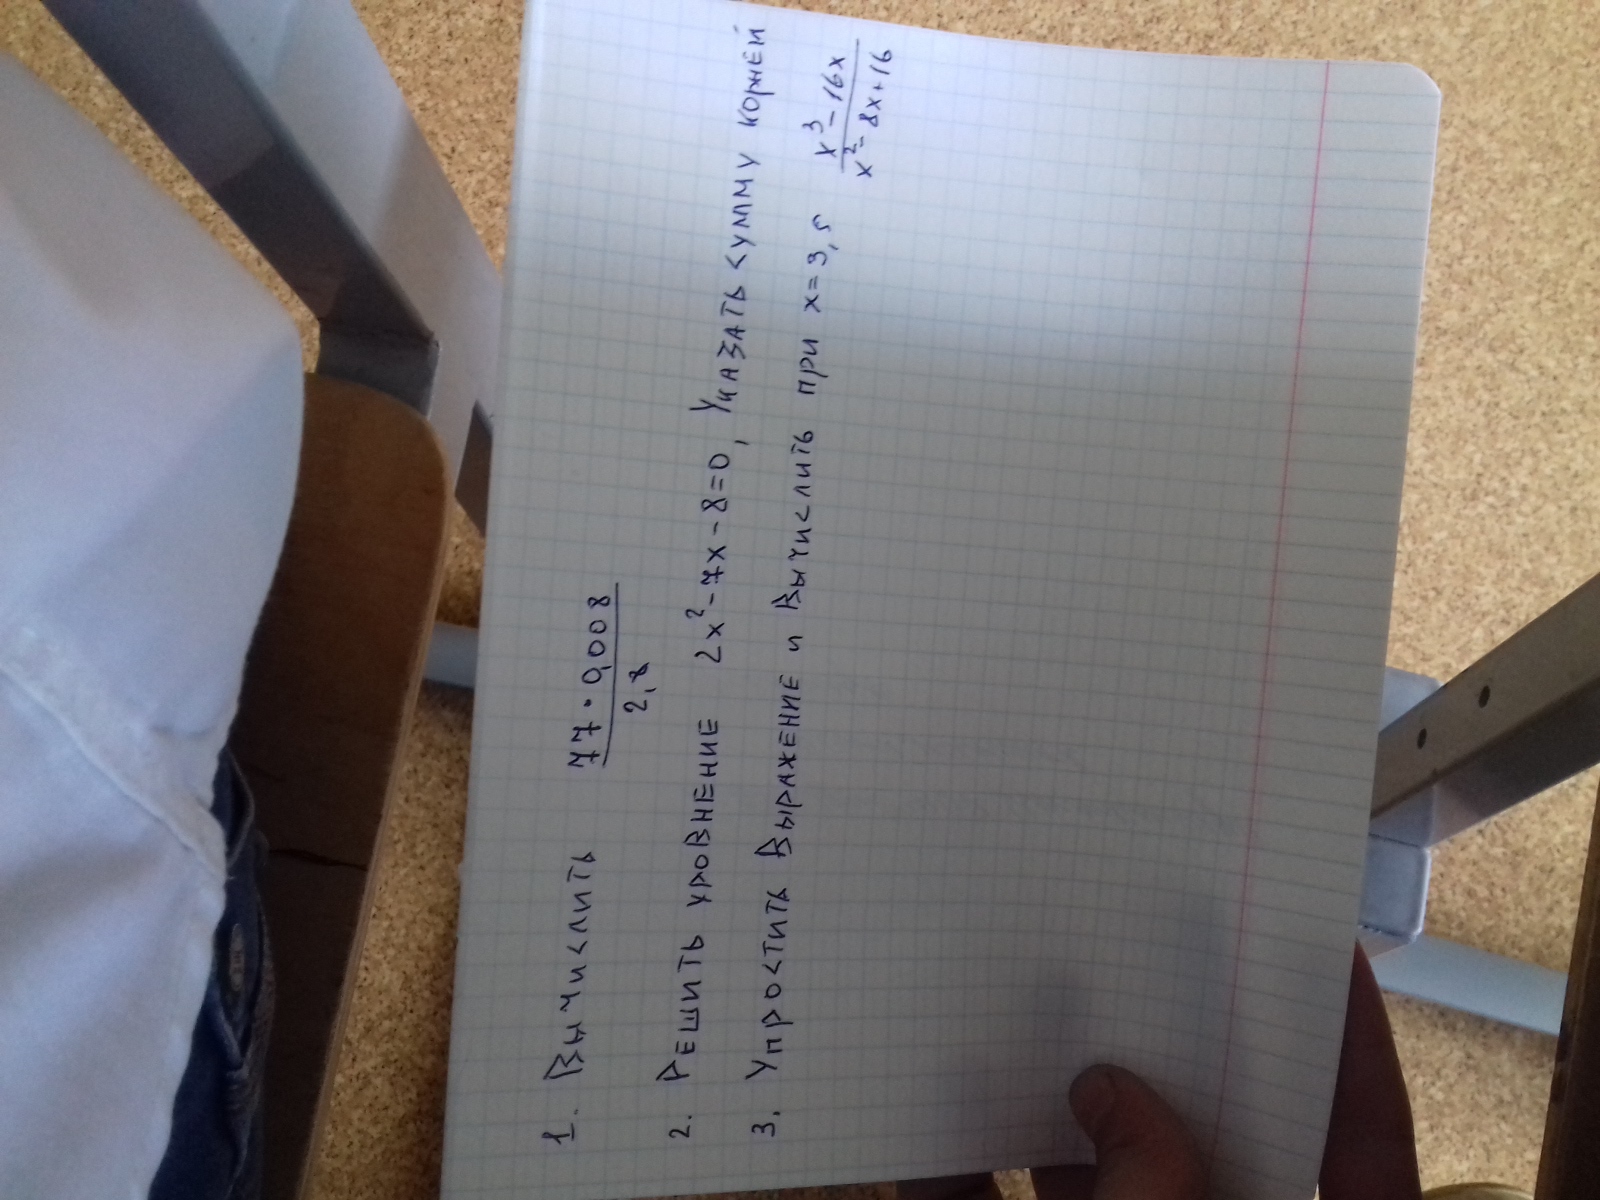 1. Вычислить 77 · 0,008 / 2,8
2. Решить уровнение 2x² - 7x - 8 = 0, Указать сумму корней
3. Упростить Выражение и Вычислить при x = 3,5 x³ - 16x / x² - 8x + 16